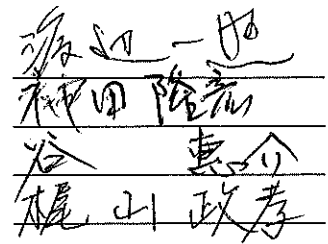 渡辺一也
柿田隆彦
谷 恵介
梶山政孝